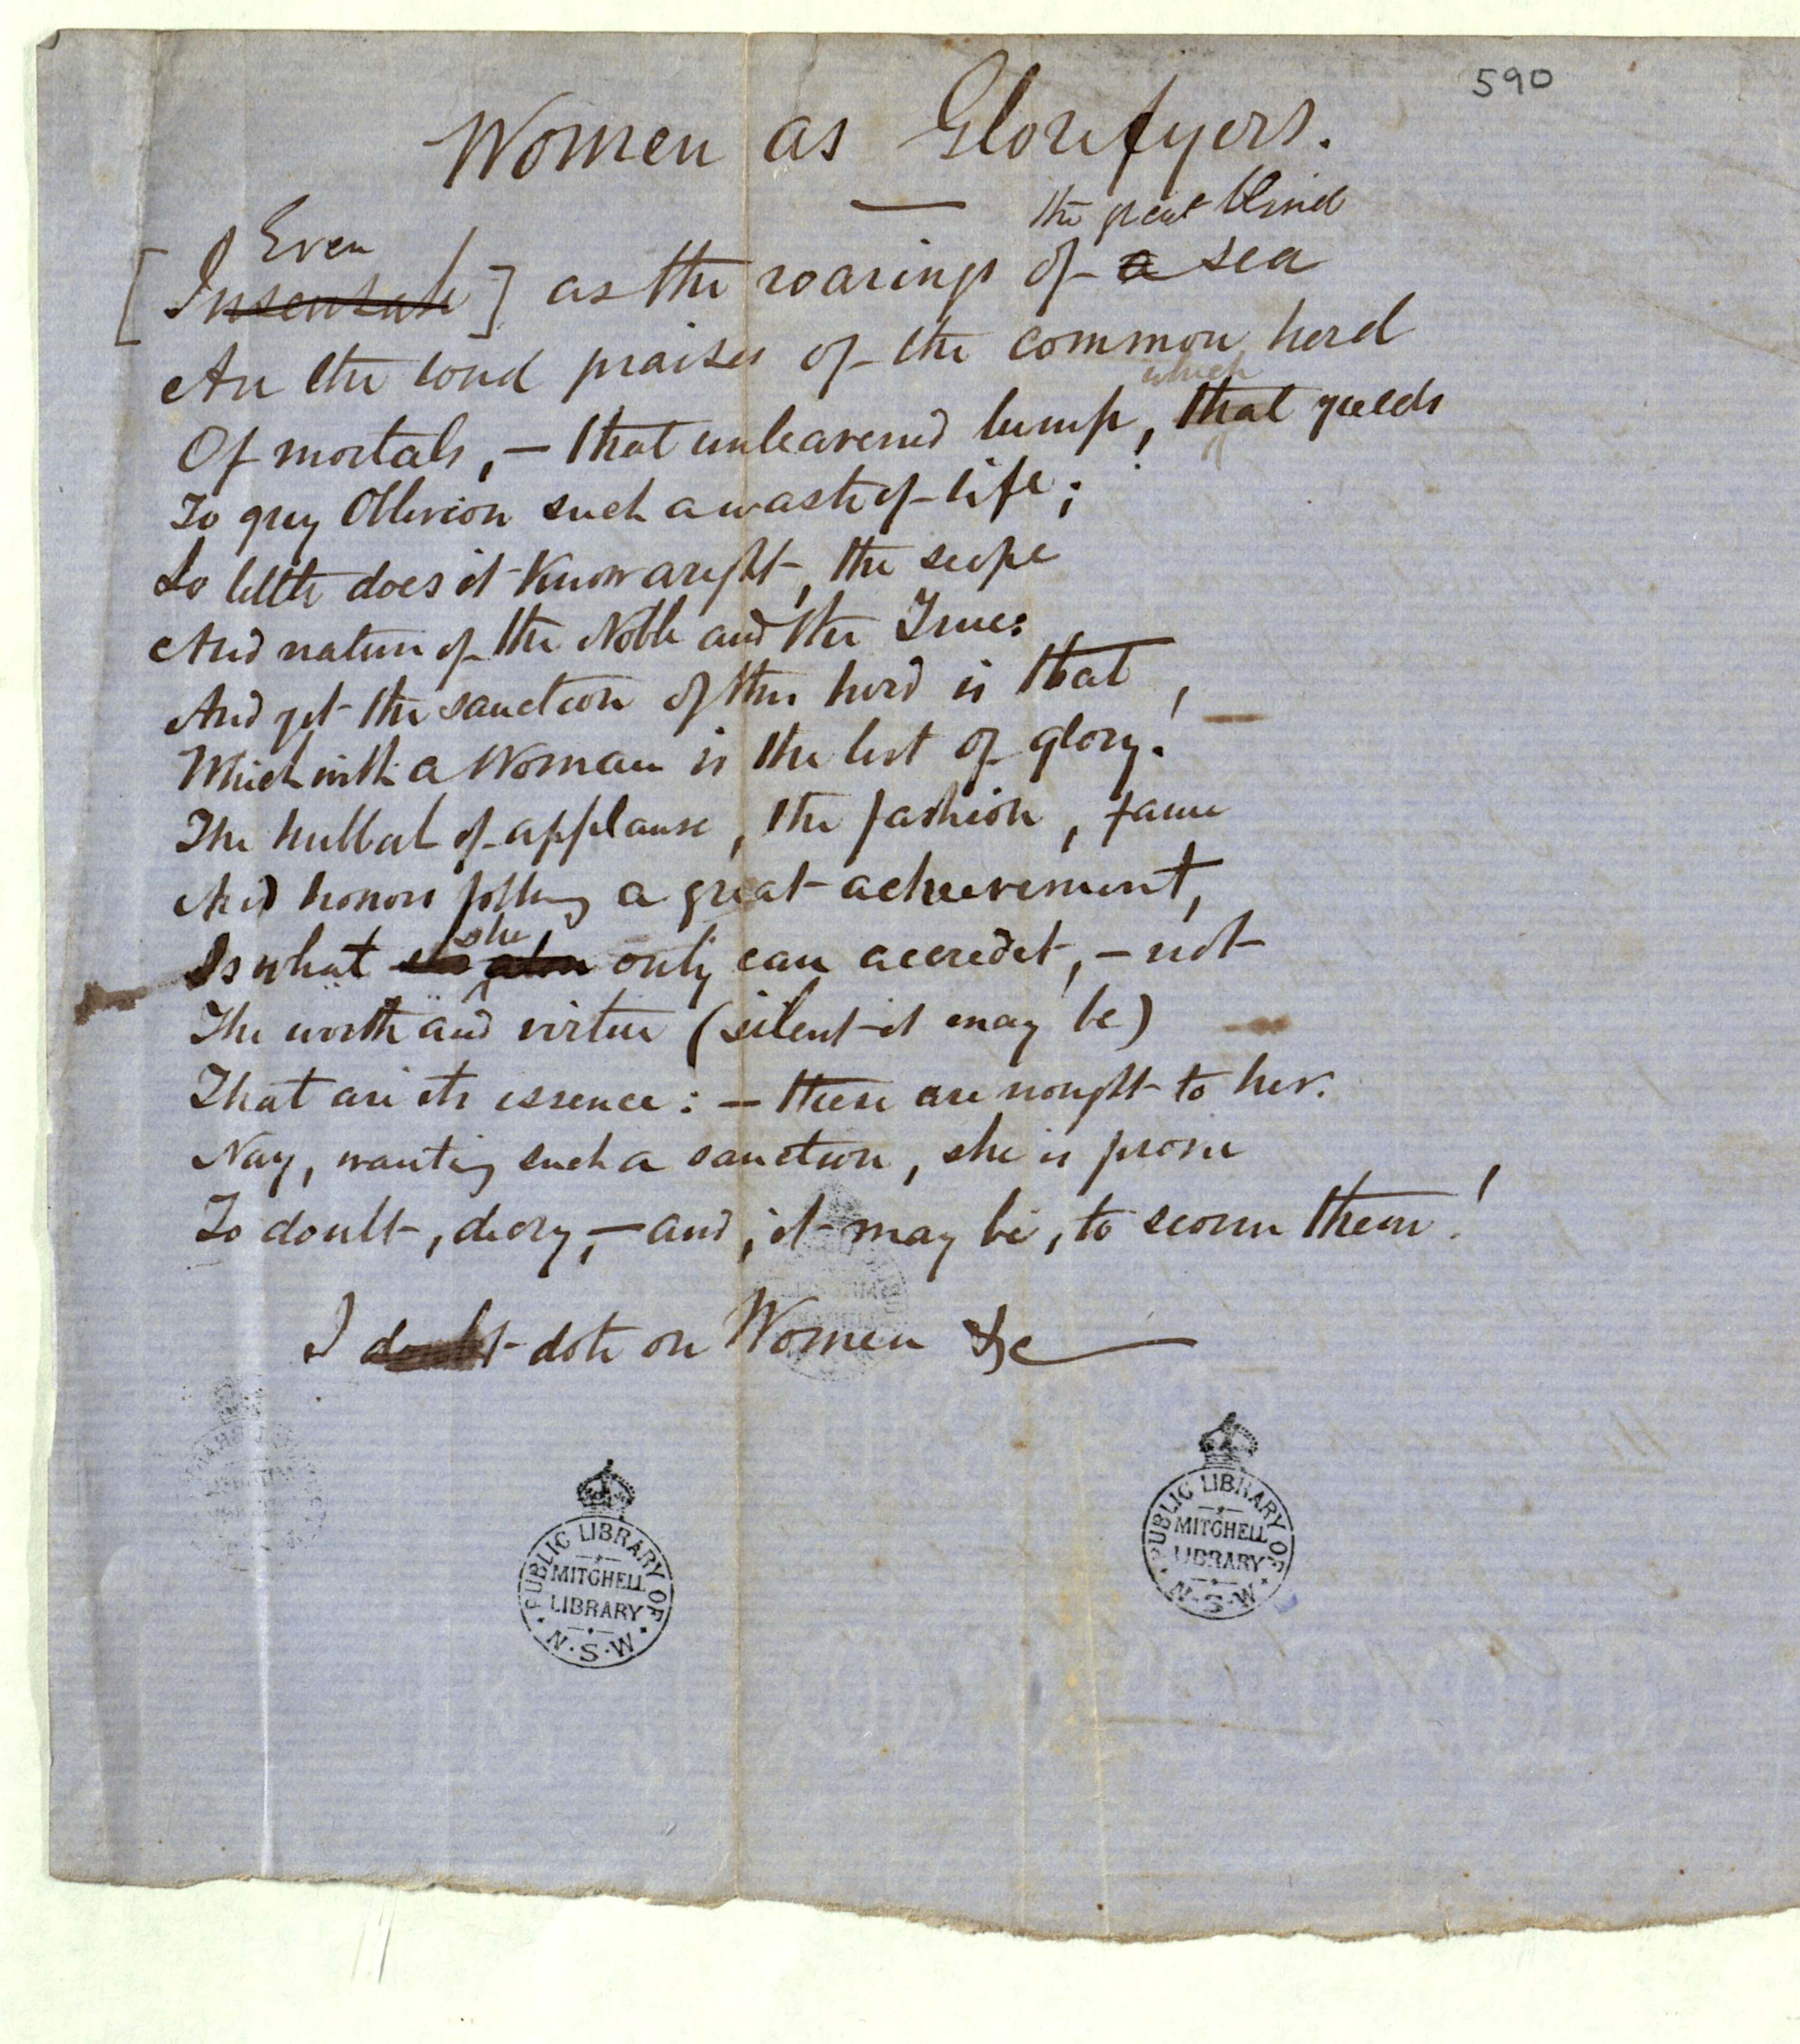 590
Women as Glorifyers.
the great blind
Even
[Insensate] as the roarings of a sea
Are the loud praises of the common herd
which
Of mortals, – that unleavened lump, that yields
To grey Oblivion such a waste of life;
So little does it know aright, the scope
And nature of the Noble and the True:
And yet the sanction of this herd is that,
Which with a Woman is the test of glory!
The hubbub of applause, the fashion, fame
And honors following a great achievement,
she
Is what she alone only can accredit, – not
The worth and virtue (silent it may be)
That are its essence: – these are nought to her.
Nay, wanting such a sanction, she is prone
To doubt, decry, – and, it may be, to scorn them!
I doubt dote on Women &c
PUBLIC LIBRARY OF N.S.W.
MITCHELL LIBRARY
PUBLIC LIBRARY OF N.S.W.
MITCHELL LIBRARY